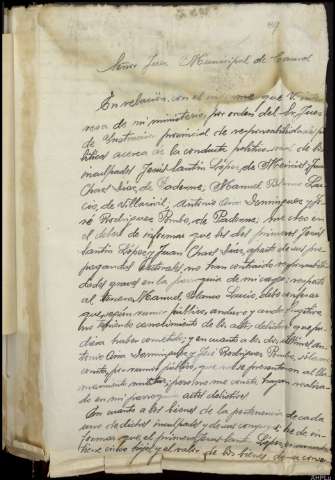 Señor Juez Municipal de
En relación con el informe que V. interesa
de mi ministerio, por orden del Sr. Juez
de Instrucción provincial de responsabilidades po-
líticas acerca de la conducta político-social de los
inculpados Jesús Santín López, de Meiriño, Juan
Chaos Díaz, de Paderne, Manuel Blanco Lucio,
de Villariño, Antonio Domínguez y Jo-
sé Rodríguez Pombo, de Paderne, me creo en
el deber de informar que los dos primeros Jesús
Santín López y Juan Chaos Díaz, aparte de sus pro-
pagandas electorales no han contraído responsabili-
dades graves en la parroquia de mi cargo; respecto
al tercero Manuel Blanco Lucio, debo confesar
que, según rumor público, anduvo y anda fugitivo
no teniendo conocimiento de los actos delictivos que pu-
diera haber cometido; y en cuanto a los dos últimos An-
tonio Domínguez y José Rodríguez Pombo, sólo me
consta, por rumor público, que no se presentaron al lla-
mamiento militar; pero no me consta hayan realiza-
do en mi parroquia actos delictivos
En cuanto a los bienes de la pertenencia de cada
uno de dichos inculpados y de sus he de in-
formar que el primero Jesús Santín López,
tiene cinco hijos y el valor de los bienes de